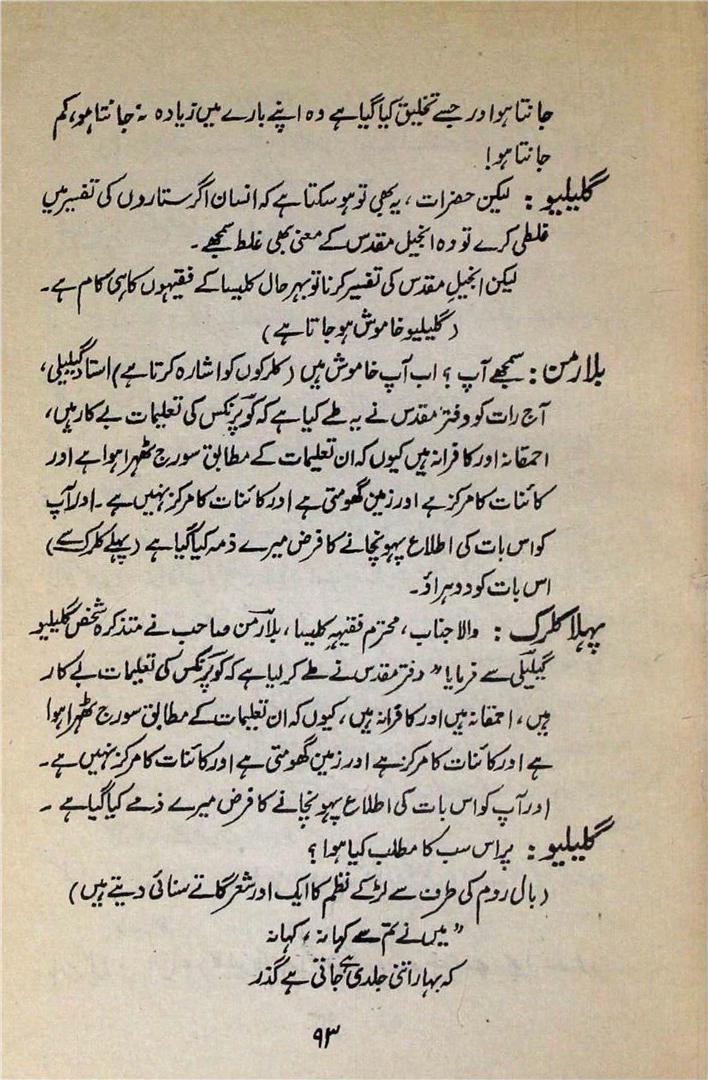 جانتا ہو اور جسے تخلیق کیا گیا ہے وہ اپنے بارے میں زیادہ نہ جانتا ہو، کم
جانتا ہو!
گلیلیو : لیکن حضرات ، یہ بھی تو ہو سکتا ہے کہ انسان اگر ستاروں کی تفسیر میں
غلطی کرے تو وہ انجیل مقدس کے معنی بھی غلط سمجھے۔
لیکن انجیلِ مقدس کی تفسیر کرنا تو بہر حال کلیسا کے فقیہوں کا ہی کام ہے۔
(گلیلیو خاموش ہو جاتا ہے)
بلارمن : سمجھے آپ ؟ اب آپ خاموش ہیں (کلرکوں کو اشارہ کرتا ہے) استاد گیلیلی،
آج رات کو دفتر مقدس نے یہ طے کیا ہے کہ کوپرنکس کی تعلیمات بے کار ہیں،
احمقانہ اور کافرانہ ہیں کیوں کہ ان تعلیمات کے مطابق سورج ٹھہرا ہوا ہے اور
کائنات کا مرکز ہے اور زمین گھومتی ہے اور کائنات کا مرکز نہیں ہے۔ اور آپ
کو اس بات کی اطلاع پہونچانے کا فرض میرے ذمہ کیا گیا ہے (پہلے کلرک سے)
اس بات کو دوہراؤ۔
پہلا کلرک : والا جناب ، محترم فقیہہ کلیسا ، بلارمن صاحب نے متذکرہ شخص گلیلیو
گیلیلی سے فرمایا " دفتر مقدس نے طے کر لیا ہے کہ کوپرنکس کی تعلیمات بے کار
ہیں ، احمقانہ ہیں اور کافرانہ ہیں ، کیوں کہ ان تعلیمات کے مطابق سورج ٹھہرا ہوا
ہے اور کائنات کا مرکز ہے اور زمین گھومتی ہے اور کائنات کا مرکز نہیں ہے۔
اور آپ کو اس بات کی اطلاع پہونچانے کا فرض میرے ذمے کیا گیا ہے ۔
گلیلیو : پر اس سب کا مطلب کیا ہوا ؟
(بال روم کی طرف سے لڑکے نظم کا ایک اور شعر گاتے سنائی دیتے ہیں)
" میں نے تم سے کہا نہ ، کہا نہ
کہ بہار اتنی جلدی ہے جاتی ہے گذر
۹۳